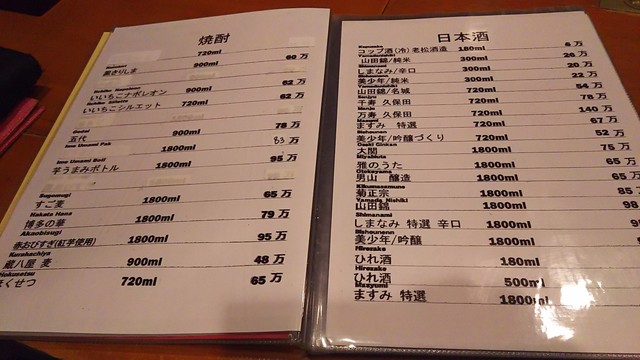 焼酎
720ml
900ml
黒きりしま 60万
Iichiko Napoleon
いいちこナポレオン 900ml 62万
いいちこシルエット 720ml 62万
Godai
五代 900ml 78万
Imo Umami Pak
1800ml 83万
Imo Umami Botl
芋うまみボトル 1800ml 95万
Sugomugi
すご麦 1800ml 65万
Hakata Hana
博多の華 1800ml 79万
Akaobisugi
赤おびすぎ(紅芋使用) 1800ml 95万
Kurahachiya
蔵八屋 麦 900ml 48万
Hokusetsu
ほくせつ 720ml 65万
日本酒
コップ酒(冷)老松酒造 180ml 6万
山田錦/純米 300ml 26万
しまなみ/辛口 300ml 20万
美少年/純米 300ml 22万
山田錦/名城 720ml 54万
千寿 久保田 720ml 78万
万寿 久保田 720ml 140万
ますみ 特選 720ml 67万
美少年/吟醸づくり 720ml 52万
Ozeki Ginkan
大関 1800ml 75万
Miyabiuta
雅のうた 1800ml 65万
Otokoyama
男山 醸造 1800ml 65万
Kikumasamune
菊正宗 1800ml 85
Yamada Nishiki
山田錦 1800ml 98
Shimanami
しまなみ 特選 辛口 1800ml
Bishounenn
美少年/吟醸 1800ml
Hirezake
ひれ酒 180ml
Hirezake
ひれ酒 500ml
Masyumi
ますみ 特選 1800ml